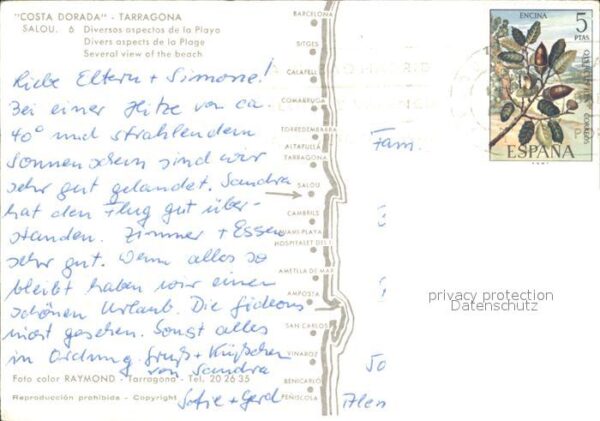 "COSTA DORADA" - TARRAGONA
SALOU. 6 Diversos aspectos de la Playa
Divers aspects de la Plage
Several view of the beach
Liebe Eltern + Simone!
Bei einer Hitze von ca.
40° und strahlendem
Sonnenschein sind wir
sehr gut gelandet. Sandra
hat den Flug gut über-
standen. Zimmer + Essen
sehr gut. Wenn alles so
bleibt haben wir einen
schönen Urlaub. Die
nicht gesehen. Sonst alles
in Ordnung. Gruß + Küßchen
von Sandra
Sofie + Gerd
Foto color RAYMOND - Tarragona - Tel. 20 26 35
Reproducción prohibida - Copyright
BARCELONA
SITGES
CALAFELL
COMARRUGA
TORREDEMBARRA
ALTAFULLA
TARRAGONA
SALOU
CAMBRILS
MIAMI PLAYA
HOSPITALET DEL I.
AMETLLA DE MAR
AMPOSTA
SAN CARLOS
VINAROZ
BENICARLO
PEÑISCOLA
Fam.
50
ENCINA
5
PTAS
CORREOS
ESPAÑA
privacy protection
Datenschutz